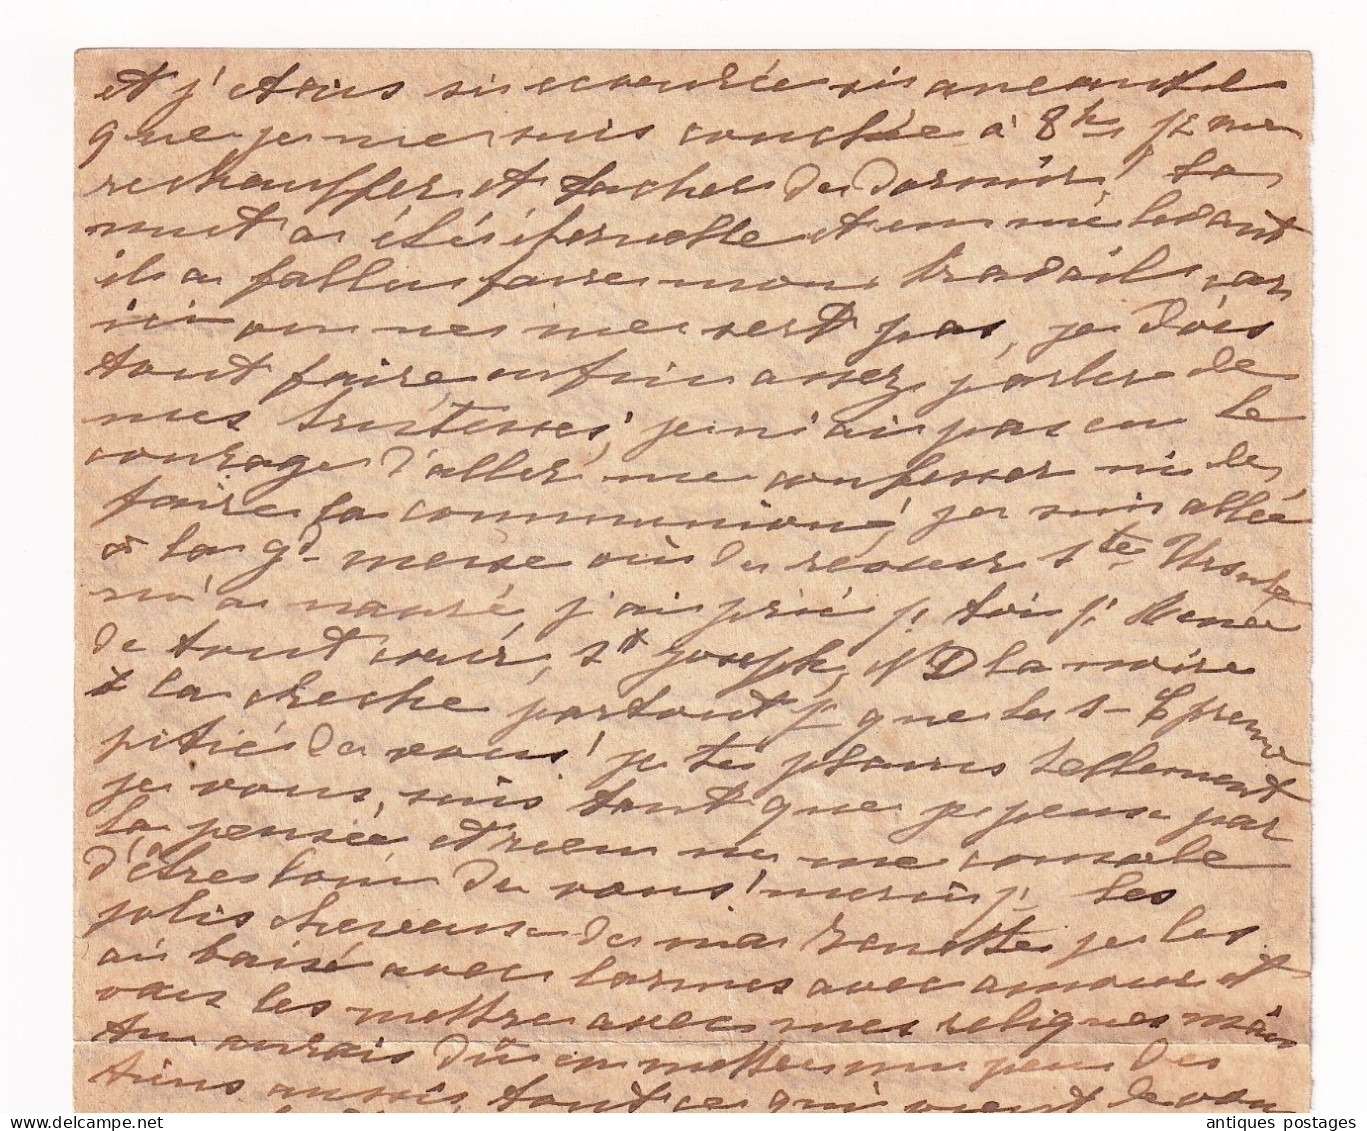 et j'étais si écoeurée si anéantie
que je me suis couchée à 8h p. me
rechauffer et tacher de dormir! la
nuit a été infernalle et en me levant
il a fallu faire mon travail car
ici on ne me sert pas, je dois
tout faire, enfin assez parler de
mes tristesses, je n'ai pas eu le
courage d'aller me confesser ni de
faire la communion, je suis allée
à la gd messe où du réseur Ste Ursule
m'a navré, j'ai prié p. toi p. Renée
de tout coeur, St Joseph, N D la noire
& la creche partout p. que le St-
pitié de vous! je te plains tellement
je vous suis tant que je peux par
la pensée et rien ne me console
d'être loin de vous! merci p. les
jolis cheveux de ma Zonette je les
ai baisé avec larmes avec amour et
vais les mettre avec mes reliques mais
tu aurais dû en mettre un peu des
tiens aussi, tout ce qui vient de vous
antiques postages